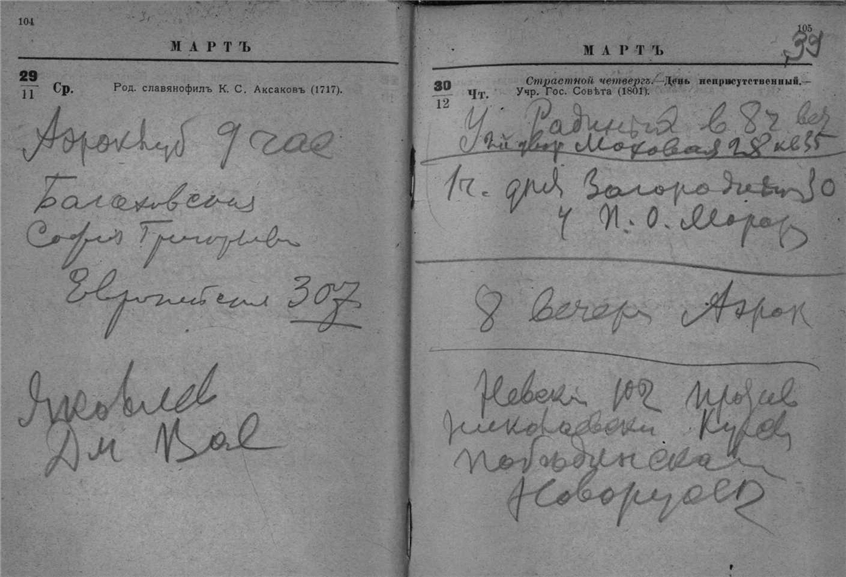 104
МАРТЪ
29
11
Ср.
Род. славянофилъ К. С. Аксаковъ (1717).
Аэроклуб 9 час
Багаховская
София Григорьев
Европейская 307
Яковлев
Дм Вас
105
39
МАРТЪ
30
12
Чт.
Страстной четвергъ.—День неприсутственный.—
Учр. Гос. Совѣта (1801).
У в 8 ч веч
двор Моховая 28 кв 35
1 ч. дня Загородный 30
у П. О. Мороз
8 вечера Аэрок
Невский 102 против
Николаевской